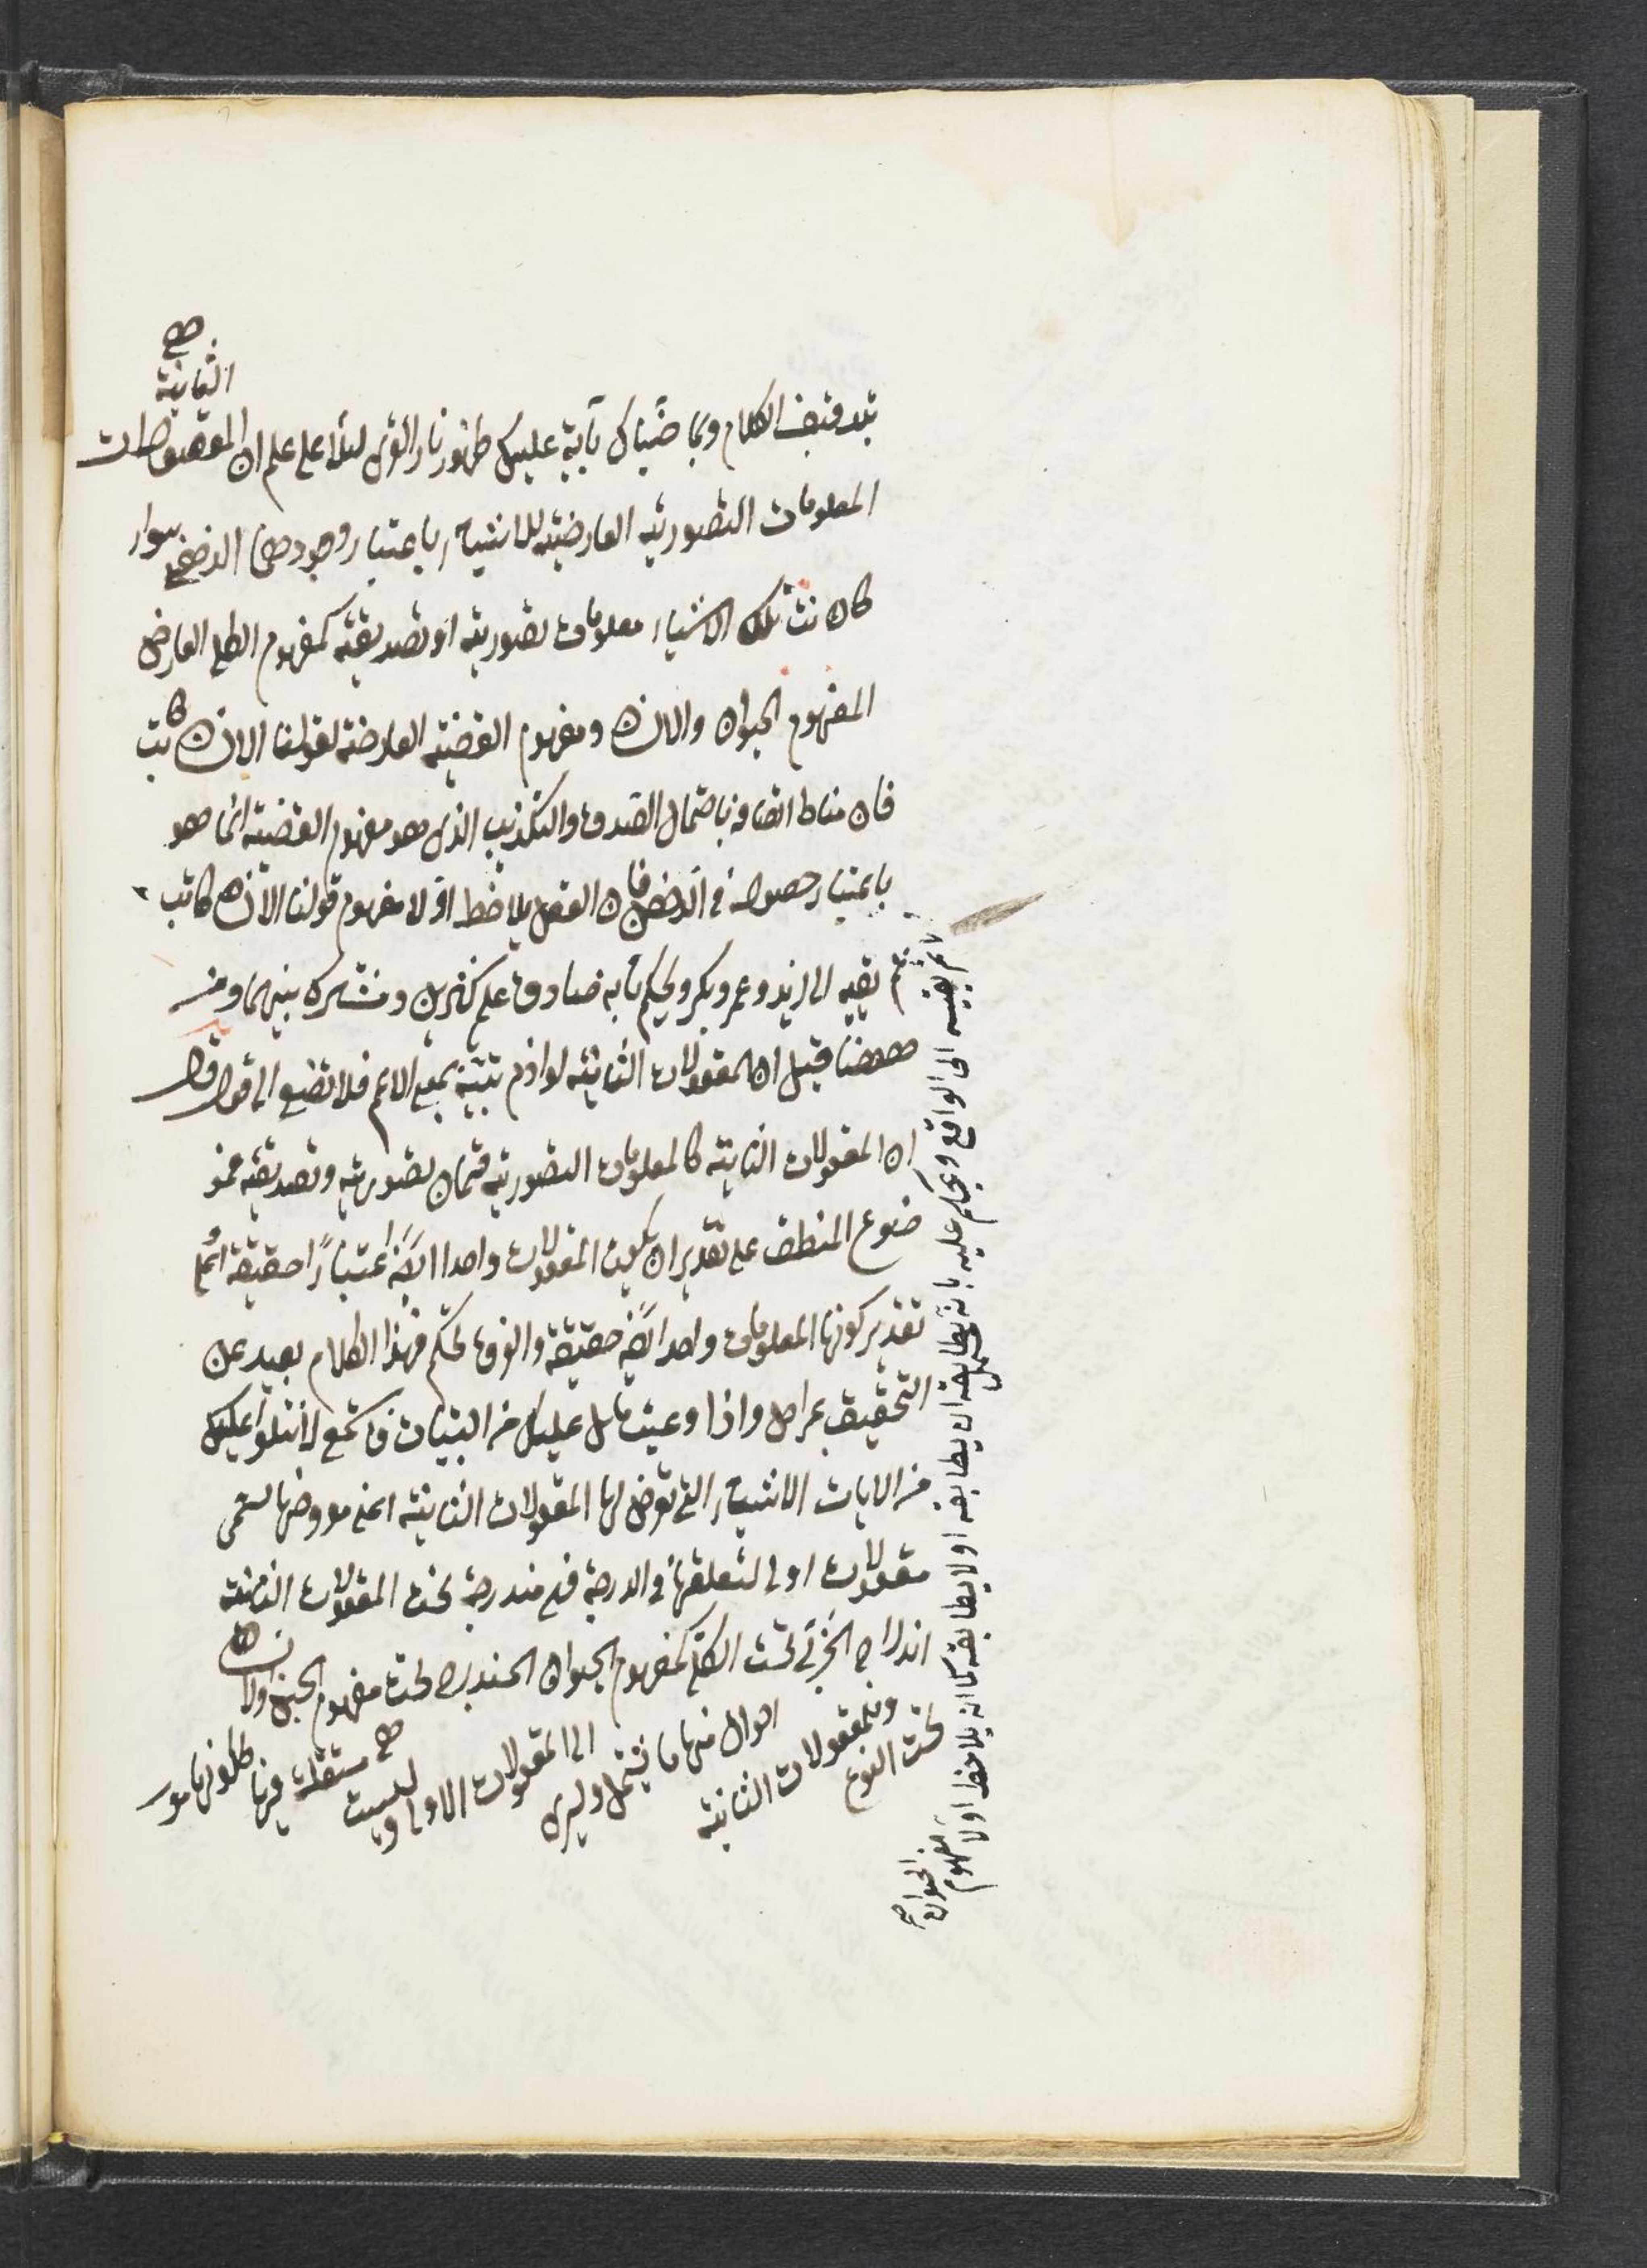 بتدقيق الكلام وبما ضيناك بآية عليك ظهور نار القرى ليلا على علم ان المعقولات
الثانية هى
المعلومات التصورية العارضة للاشياء باعتبار وجودها الذهنى سواء
كانت تلك الاشياء معلومات تصورية او تصديقية كمفهوم الكلى العارض
المفهوم الحيوان والانسان ومفهوم القضية العارضة لقولنا الانسان كاتب
فان مناط اتصافه باحتمال الصدق والتكذيب الذى هو مفهوم القضية انما هو
باعتبار حصوله فى الذهن فان العقل يلاحظ اولا مفهوم قولنا الانسان كاتب
ثم يقيه الى زيد وعمرو بكر ويحكم بانه صادق على كثيرين ومشترك بينهما ومن
ههنا قيل ان المعقولات الثانية لوازم بينة بمعنى الاعم فلا تضع الى قول قال
ان المعقولات الثانية كالمعلومات التصورية قسمان تصورية وتصديقية فمو
ضوع المنطق على تقدير ان يكون المعقولات واحدا ايضا اعتبارا حقيقة او على
تقدير كونها المعلومات واحدا ايضا حقيقة والفرق تحكم فهذا الكلام بعيد عن
التحقيق بمراحل واذا وعيت ما عليك من البينات فاستمع لما نتلوا عليك
من الايات الاشياء التى تعرض لها المعقولات الثانية اعنى معروضها تسمى
معقولات اولى لتعلقها فى الدرجة فهى مندرجة تحت المعقولات الثانية
اندراج الجزئى تحت الكلى كمفهوم الحيوان المندرج تحت مفهوم الجنس والانسان
تحت النوع
وللمعقولات الثانية
احوال منها ما يشمل ويسرى
الى المعقولات الاولى وليست
هى مستقلة فيها لكونها مو
ثم يقيسه الى الواقع ويحكم عليه بانه يحتمل ان يطابقه او لا يطابقه كما انه يلاحظ اولا مفهوم
الحيوان